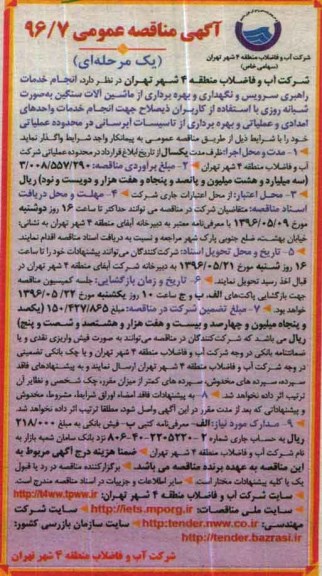 آگهی مناقصه عمومی ۹۶/۷
(یک مرحله‌ای)
شرکت آب و فاضلاب منطقه ۴ شهر تهران
(سهامی خاص)
شرکت آب و فاضلاب منطقه ۴ شهر تهران در نظر دارد، انجام خدمات
راهبری سرویس و نگهداری و بهره برداری از ماشین آلات سنگین به‌صورت
شبانه روزی با استفاده از کاربران ذیصلاح جهت انجام خدمات واحدهای
امدادی و عملیاتی و بهره برداری از تاسیسات ابرسانی در محدوده عملیاتی
خود را با شرایط ذیل از طریق مناقصه عمومی به پیمانکار واجد شرایط واگذار نماید:
۱- مدت و محل اجرا: ظرف مدت یکسال از تاریخ ابلاغ قرارداد در محدوده عملیاتی شرکت
آب و فاضلاب منطقه ۴ شهر تهران ۲- مبلغ برآوردی مناقصه: ۳/۰۰۸/۵۵۷/۲۹۰
(سه میلیارد و هشت میلیون و پانصد و پنجاه و هفت هزار و دویست و نود) ریال
۳- محل اعتبار: از محل اعتبارات جاری شرکت ۴- مهلت و محل دریافت
اسناد مناقصه: متقاضیان شرکت در مناقصه می توانند حداکثر تا ساعت ۱۶ روز دوشنبه
مورخ ۱۳۹۶/۰۵/۰۹ با معرفی‌نامه معتبر به دبیرخانه آبفای منطقه ۴ شهر تهران به نشانی:
خیابان بهشت، ضلع جنوبی پارک شهر مراجعه و نسبت به دریافت اسناد مناقصه اقدام نمایند.
۵- تاریخ و محل تحویل اسناد: شرکت‌کنندگان می‌توانند پیشنهادات خود را تا ساعت
۱۶ روز شنبه مورخ ۱۳۹۶/۰۵/۲۱ به دبیرخانه شرکت آبفای منطقه ۴ شهر تهران در
قبال اخذ رسید تحویل نمایند. ۶- تاریخ و زمان بازگشایی: جلسه کمیسیون مناقصه
جهت بازگشایی پاکت‌های الف، ب و ج ساعت ۱۰ روز یکشنبه مورخ ۱۳۹۶/۰۵/۲۲
خواهد بود. ۷- مبلغ تضمین شرکت در مناقصه: مبلغ ۱۵۰/۴۲۷/۸۶۵ (یکصد
و پنجاه میلیون و چهارصد و بیست و هفت هزار و هشتصد و شصت و پنج)
ریال می باشد که شرکت‌کنندگان در مناقصه می‌توانند به صورت فیش واریزی نقدی و یا
ضمانتنامه بانکی در وجه شرکت آب و فاضلاب منطقه ۴ شهر تهران و یا چک بانکی تضمینی
در وجه شرکت آب و فاضلاب منطقه ۴ شهر تهران ارسال نمایند و به پیشنهادهای فاقد
سپرده، سپرده های مخدوش، سپرده های کمتر از میزان مقرر، چک شخصی و نظایر آن
ترتیب اثر داده نخواهد شد. ۸- به پیشنهادات فاقد امضاء اوراق شرایط، مشروط، مخدوش
و پیشنهاداتی که بعد از مدت مقرر در این آگهی واصل شود، مطلقا ترتیب اثر داده نخواهد شد.
۹- مدارک مورد نیاز: الف- معرفی‌نامه کتبی ب- فیش بانکی به مبلغ ۲۱۸/۰۰۰
ریال به حساب جاری شماره ۲-۲۲۰۵۲۲۰-۴۰-۸۰۶ نزد بانک سامان شعبه بازار به
نام شرکت آب و فاضلاب منطقه ۴ شهر تهران ضمنا هزینه درج آگهی مربوط به
این مناقصه به عهده برنده مناقصه می باشد. برگزارکننده مناقصه در رد یا قبول
یک یا کلیه پیشنهادات مختار است. سایر اطلاعات و جزییات در اسناد مناقصه مندرج است.
سایت شرکت آب و فاضلاب منطقه ۴ شهر تهران: http://t4ww.tpww.ir
سایت ملی مناقصات: http://iets.mporg.ir سایت شرکت
مهندسی: http:tender.nww.co.ir سایت سازمان بازرسی کشور:
http://tender.bazrasi.ir
شرکت آب و فاضلاب منطقه ۴ شهر تهران